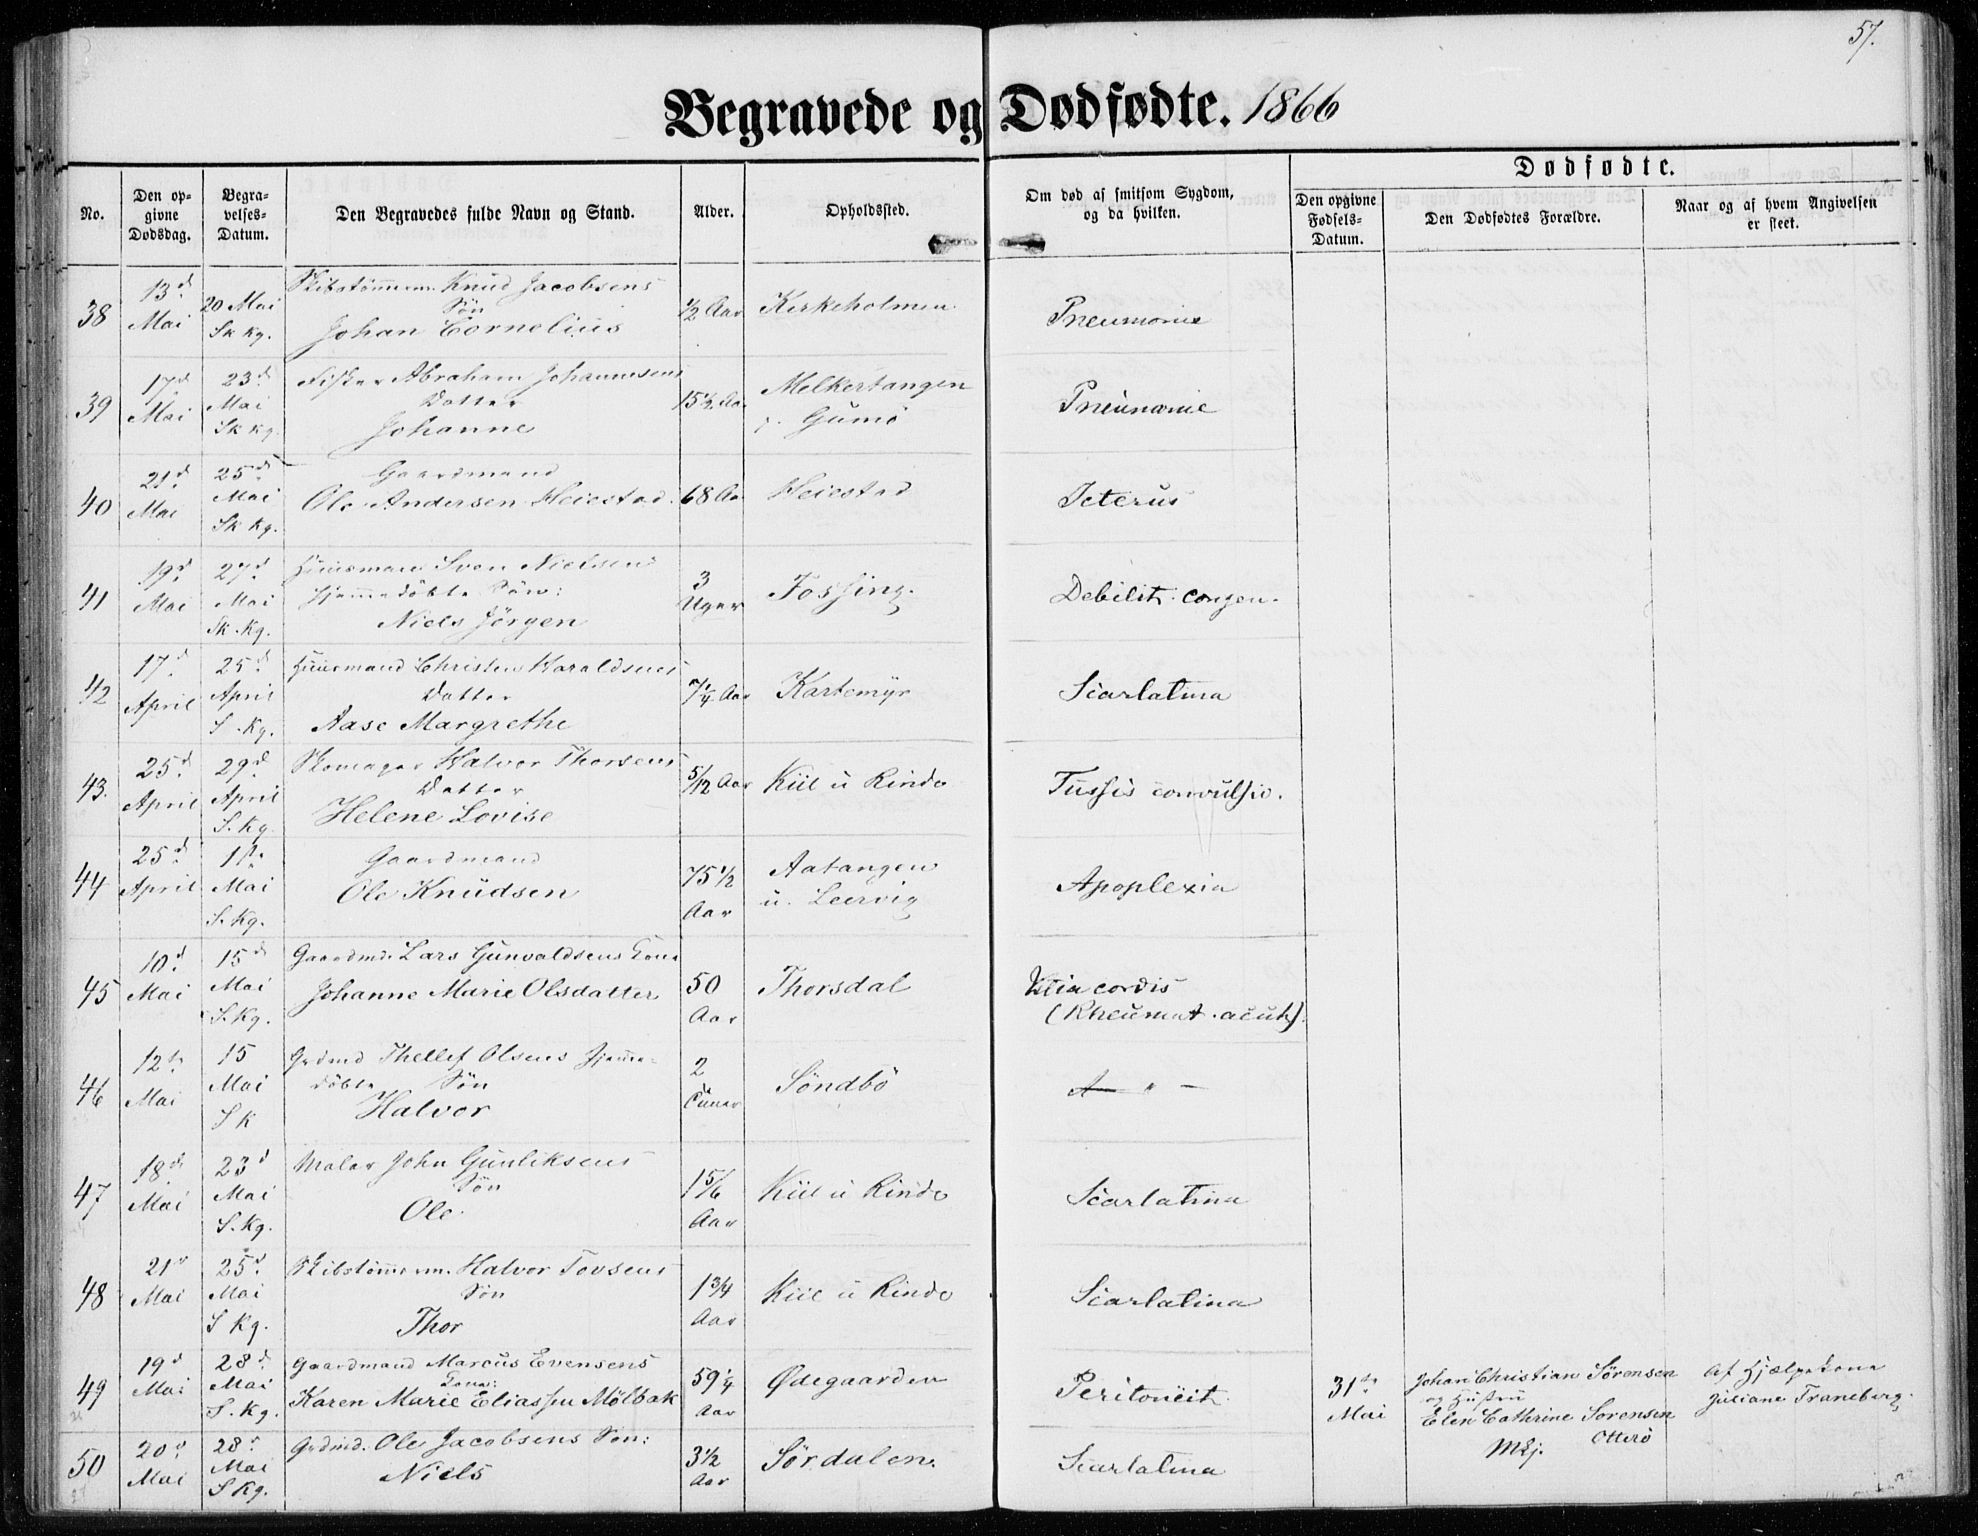 57.
Begravede og Dødfødte. 1866
No.
Den op-
givne
Dødsdag.
Begra-
velses-
Datum.
Den Begravedes fulde Navn og Stand.
Alder.
Opholdssted.
Om død af smitsom Sygdom,
og da hvilken.
Dødfødte.
Den opgivne
Fødsels-
Datum.
Den Dødfødtes Forældre.
Naar og af hvem Angivelsen
er skeet.
38
13d
Mai
20 Mai
Sk kg.
Skibstømmerm. Knud Jacobsens
Søn
Johan Cornelius
1/2 Aar
Kirkeholmen
Pneumonie
39
17d
Mai
23d
Mai
Sk kg.
Fisker Abraham Johannesens
Datter
Johanne
15 1/2 Aar
Melkertangen
p. Gumö
Pneumonie
40
21d
Mai
25d
Mai
Sk kg.
Gaardmand
Ole Andersen Heiestad
68 Aar
Heiestad
Icterus
41
19d
Mai
27d
Mai
Sk. Kg.
Huusmand Sven Nielsens
hjemmedöbte Sön:
Niels Jörgen
3
Uger
Fossing.
Debilit. congen.
42
17d
April
25d
April
S. Kg.
Huusmand Christen Haraldsens
Datter
Aase Margrethe
7 1/4 Aar
Kartemyr
Scarlatina
43.
25d
April
29d
April
S. Kg.
Skomager Halvor Thorsens
Datter
Helene Lovise
5/12 Aar
Kiil u Rinde
Tussis convulsiv.
44
25d
April
1ste
Mai
S. Kg.
Gaardmand
Ole Knudsen
75 1/2
Aar
Aatangen
u. Leervig
Apoplexia
45
10d
Mai
15d
Mai
S. Kg.
Gaardmd. Lars Gunvaldsens Kone
Johanne Marie Olsdatter
50
Aar
Thorsdal
Vitia cordis
(Rheumat. acut).
46
12te
Mai
15
Mai
S K
Grdmd Thellef Olsens hjemme-
döbte Søn
Halvor
2
Söndbö
" -
47
18d
Mai
23d
Mai
S. Kg.
Maler John Gunliksens
Søn
Ole
1 5/6
Aar
Kiil u Rinde
Scarlatina
48
21d
Mai
25d
Mai
S Kg.
Skibstømmerm. Halvor Tovsens
Søn
Thor
1 3/4
Aar
Kiil u Rinde
Scarlatina
49
19d
Mai
28d
Mai
S. Kg.
Gaardmand Marcus Evensens
Kone:
Karen Marie Eliassen Mølbak
59 1/4
Aar
Ødegaarden
Peritoneit.
31te
Mai
Johan Christian Sørensen
og Hustru
Elen Cathrine Sorensen
Otterö
Af Hjælpekone
Juliane Traneberg.
50
20d
Mai
28d
Mai
S Kg.
Grdmd. Ole Jacobsens Søn:
Niels
3 1/2
Aar
Sördalen.
Scarlatina